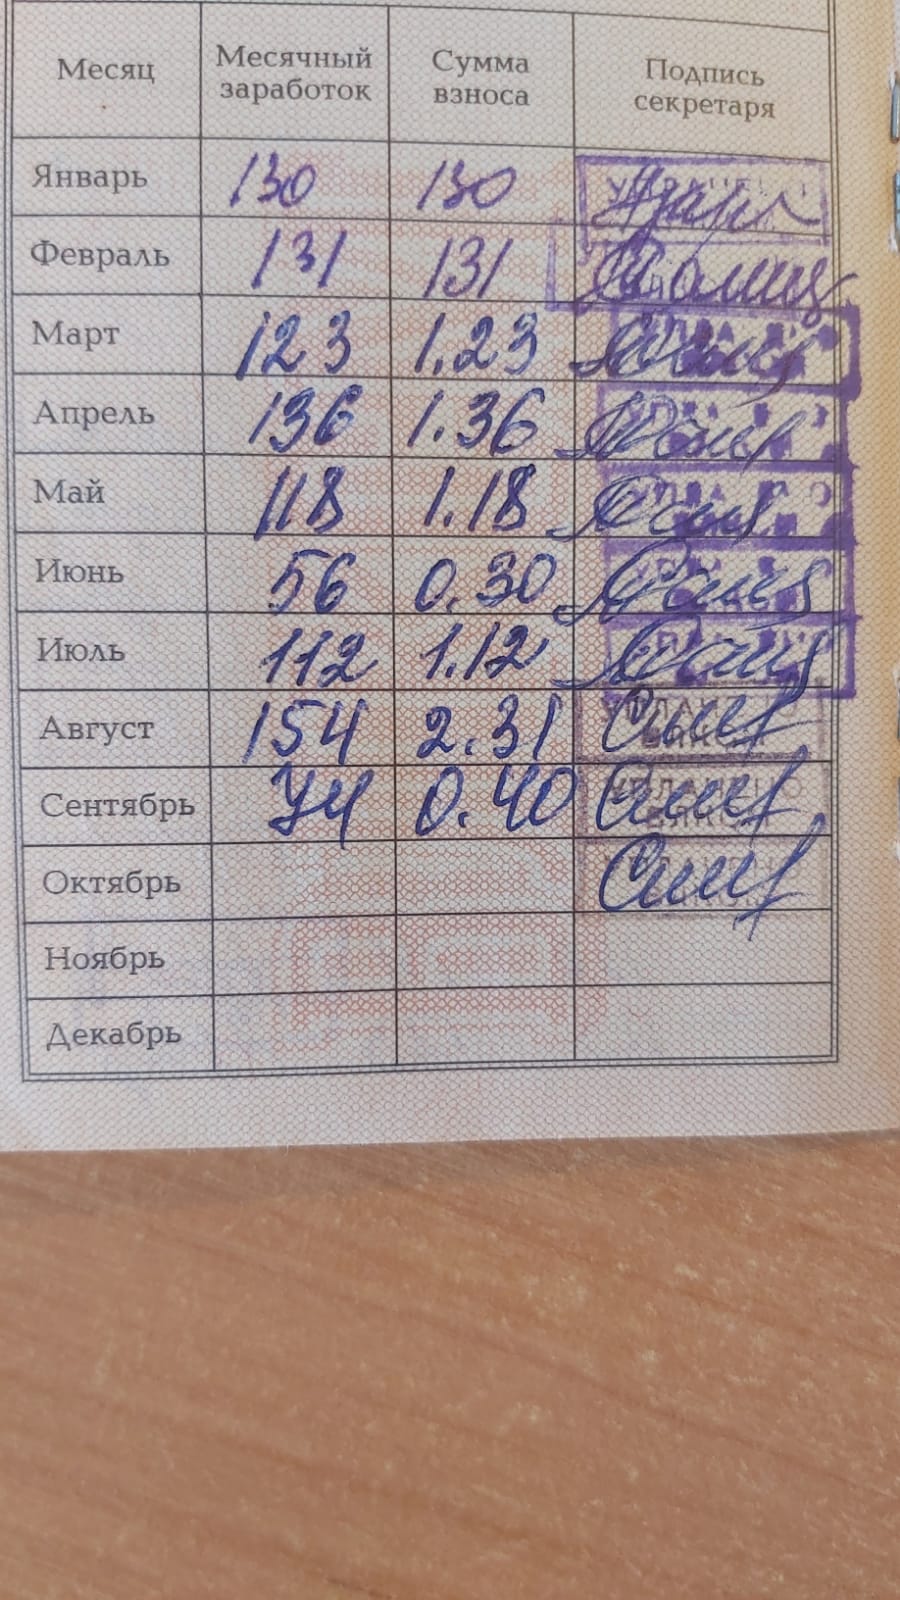 Месяц Месячный заработок Сумма взноса Подпись секретаря
Январь 130 130
Февраль 131 131
Март 123 1.23
Апрель 136 1.36
Май 118 1.18
Июнь 56 0.30
Июль 112 1.12
Август 154 2.31
Сентябрь 74 0.40
Октябрь
Ноябрь
Декабрь